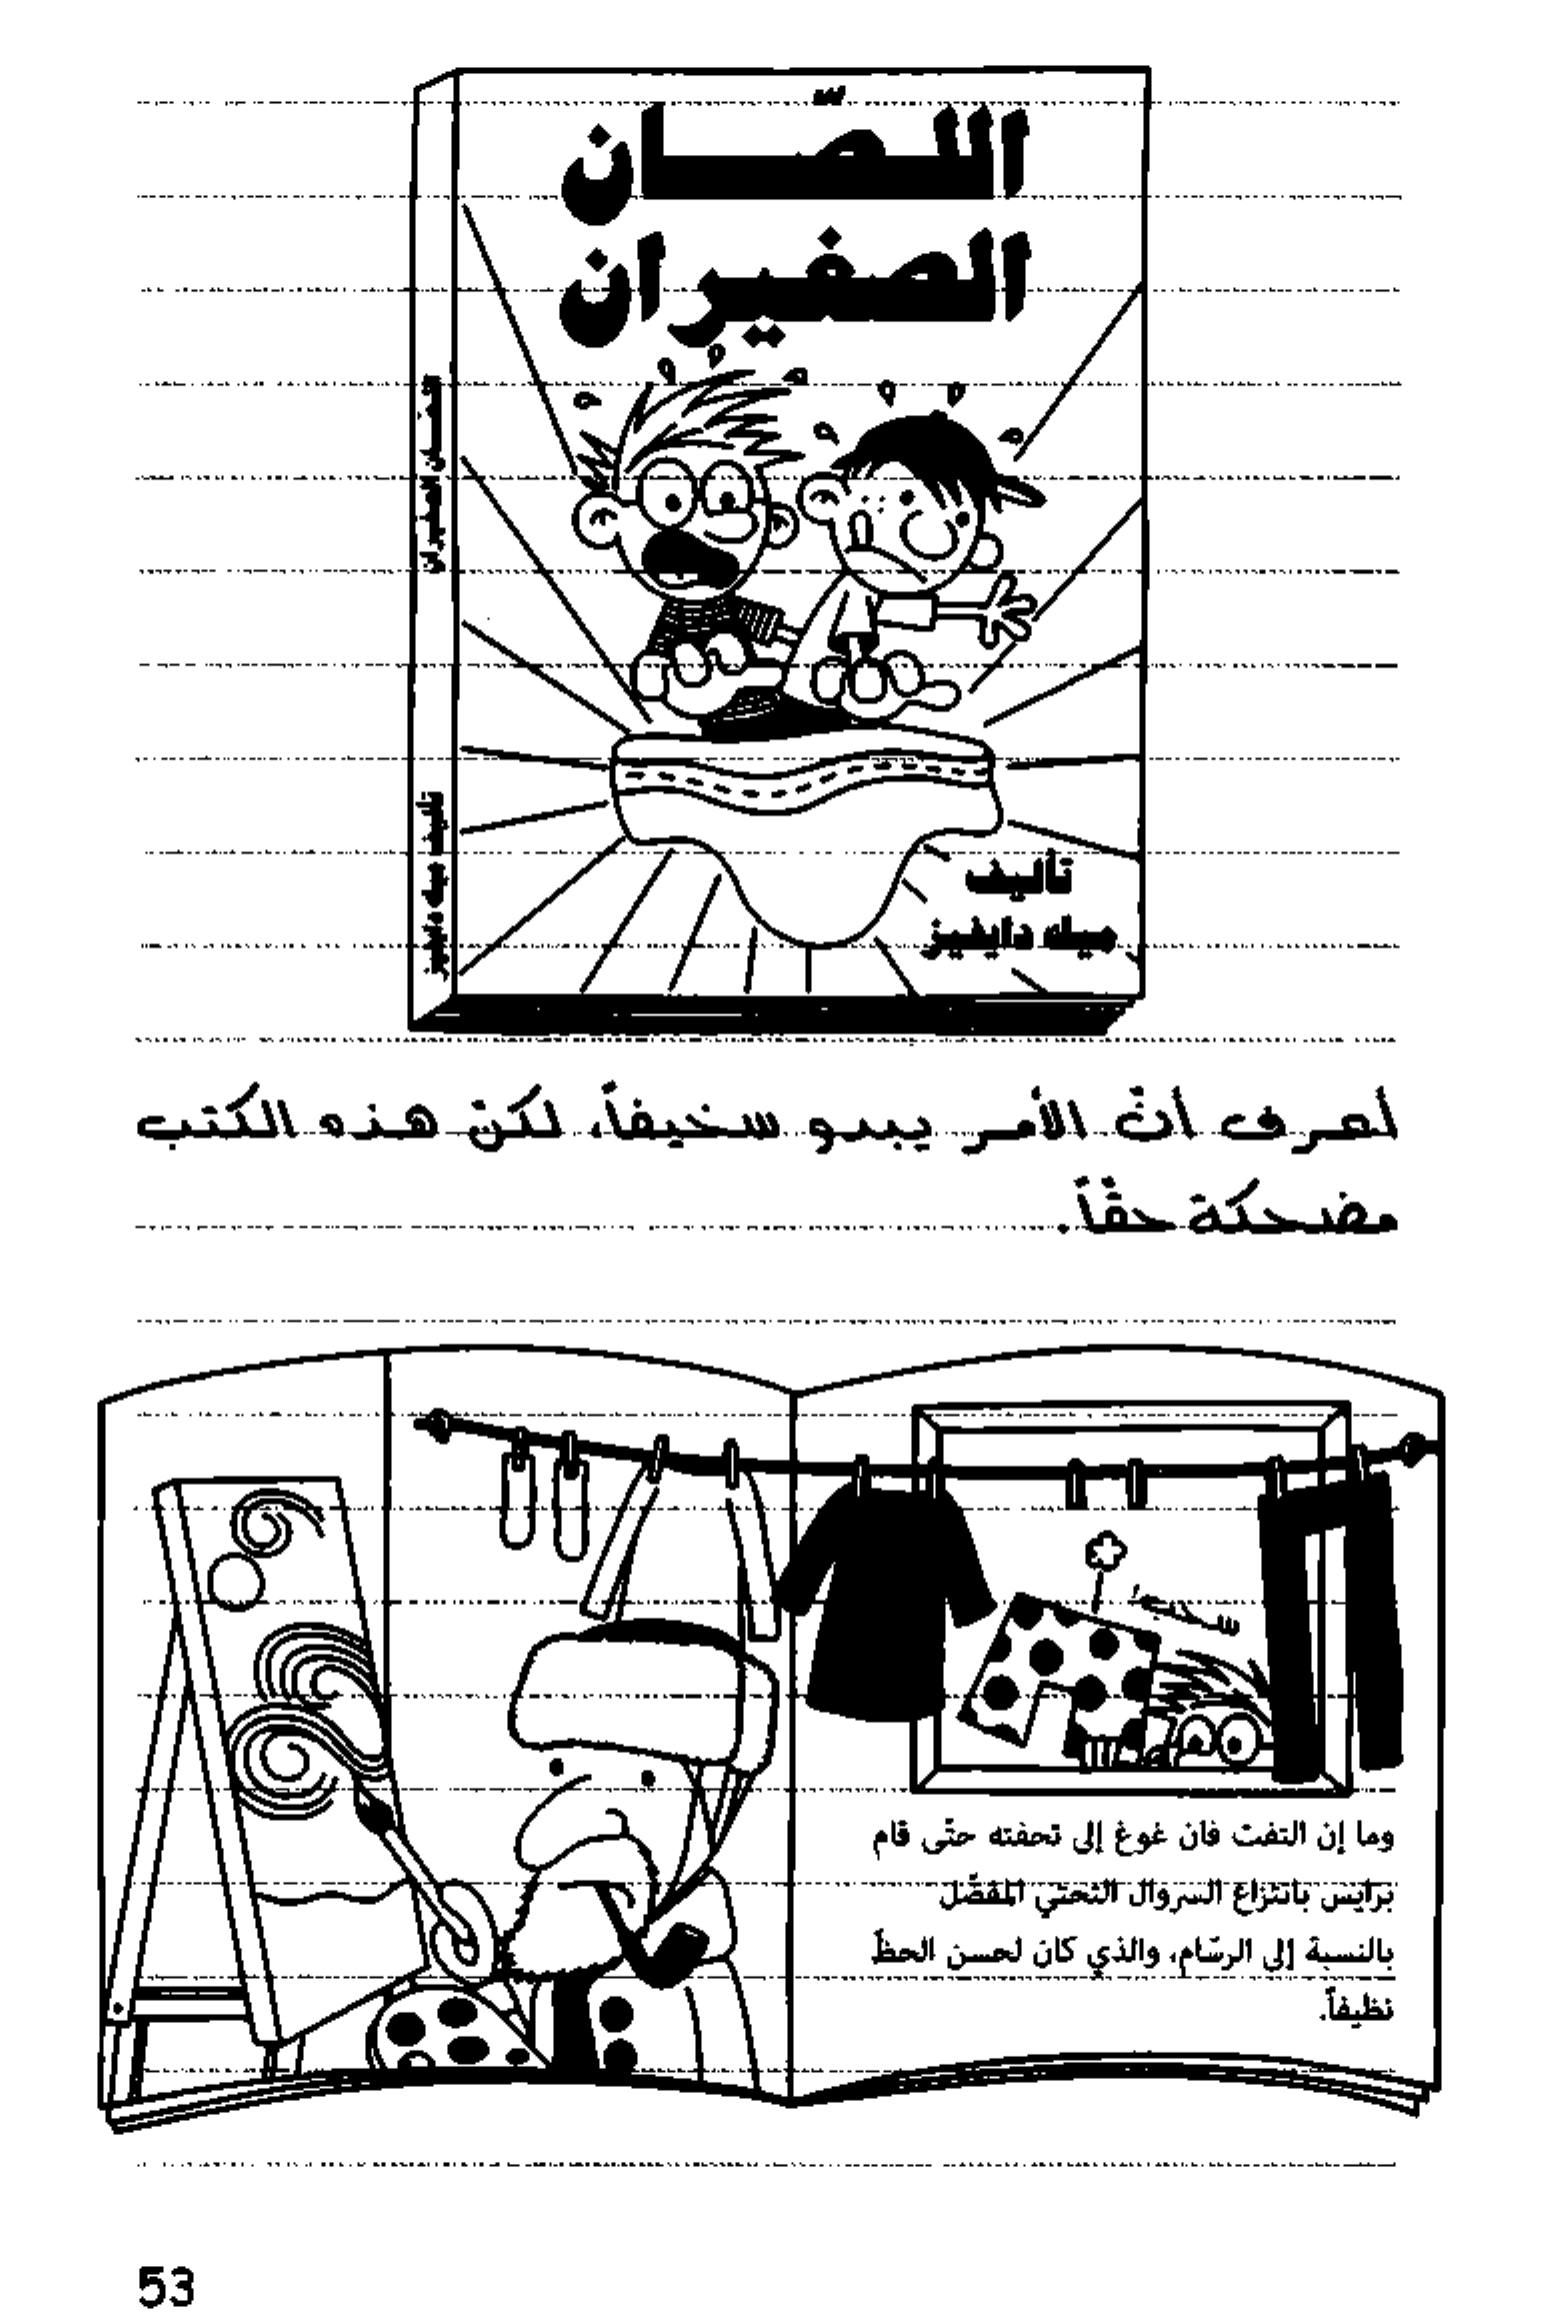 اللّصّان
الصغيران
اللصّان الصغيران
تأليف ميك دايفيز
تأليف
ميك دايفيز
أعرف أنّ الأمر يبدو سخيفاً، لكنّ هذه الكتب
مضحكة حقّاً.
وما إن التفت فان غوغ إلى تحفته حتّى قام
برايس بانتزاع السروال التحتي المفضّل
بالنسبة إلى الرسّام، والذي كان لحسن الحظّ
نظيفاً.
53